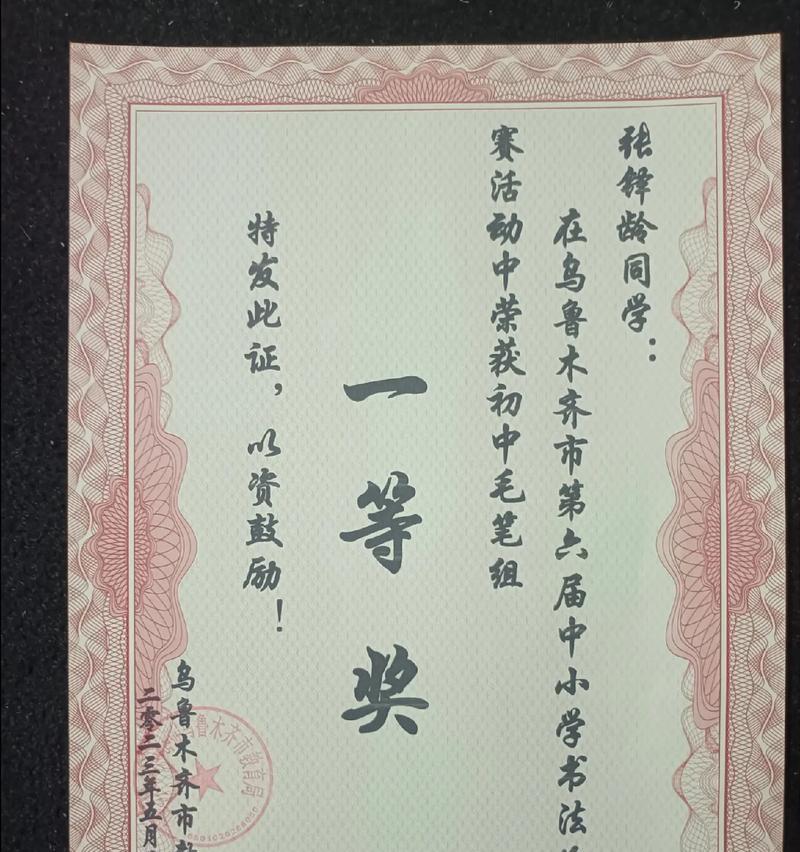 张铎龄同学：
在乌鲁木齐市第六届中小学书法
赛活动中荣获初中毛笔组
一等奖
特发此证，以资鼓励！
乌鲁木齐市教
二零二三年五月
乌鲁木齐市教育局